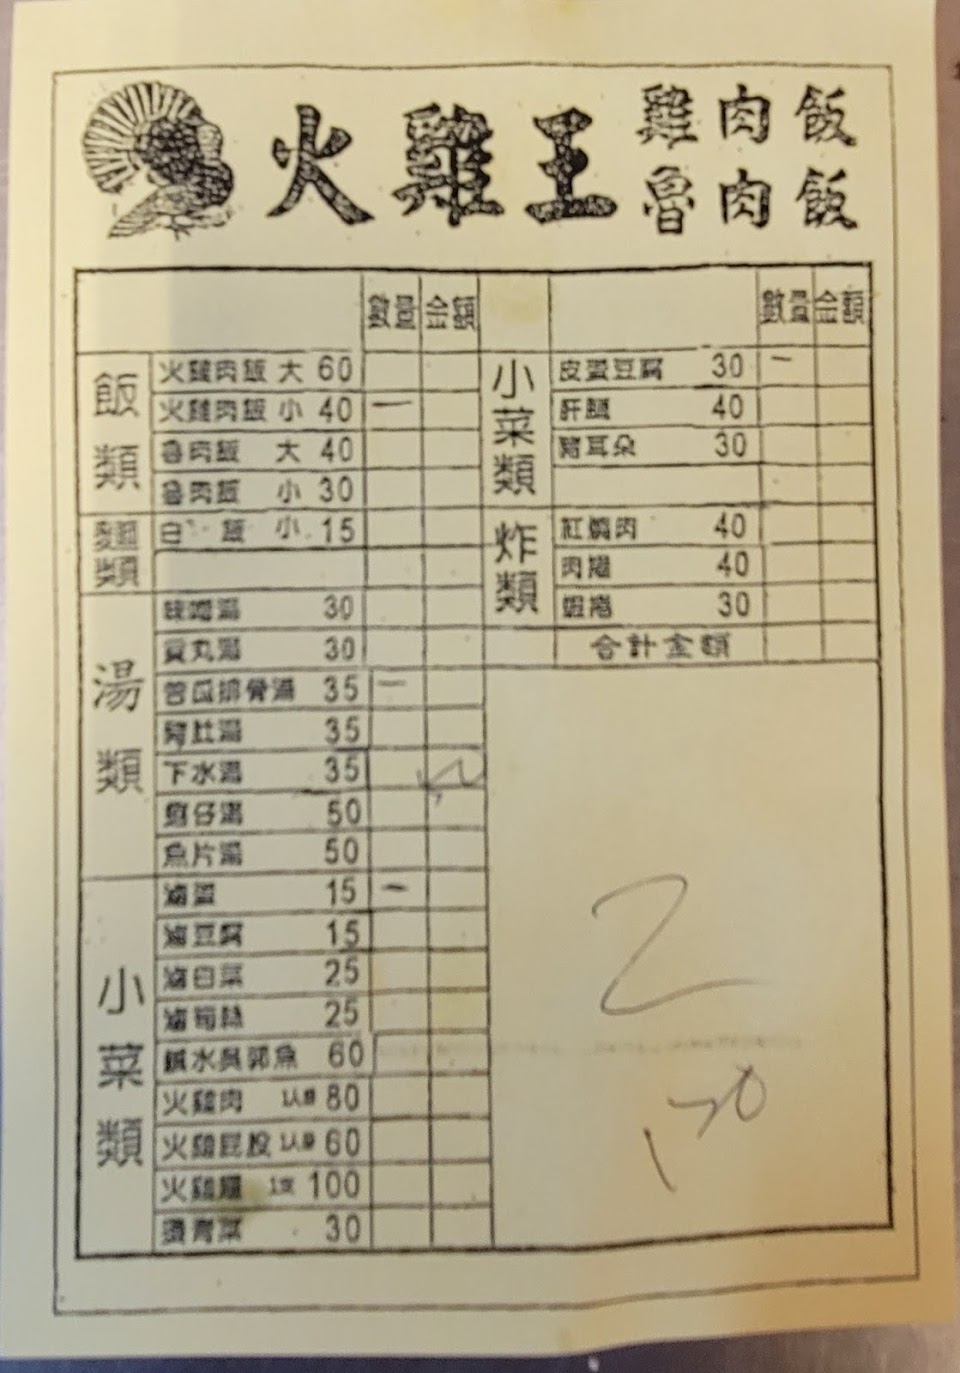 火雞王
雞肉飯
魯肉飯
數量 金額
飯類
火雞肉飯 大 60
火雞肉飯 小 40 一
魯肉飯 大 40
魯肉飯 小 30
麵類
白飯 小 15
湯類
味噌湯 30
貢丸湯 30
苦瓜排骨湯 35 一
35
下水湯 35
蚵仔湯 50
魚片湯 50
小菜類
滷蛋 15 一
滷豆腐 15
滷白菜 25
滷筍絲 25
鹹水吳郭魚 60
火雞肉 80
火雞屁股 60
火雞腿 100
燙青菜 30
數量 金額
小菜類
皮蛋豆腐 30 一
肝腱 40
豬耳朵 30
炸類
紅燒肉 40
肉捲 40
蝦捲 30
合計金額
2